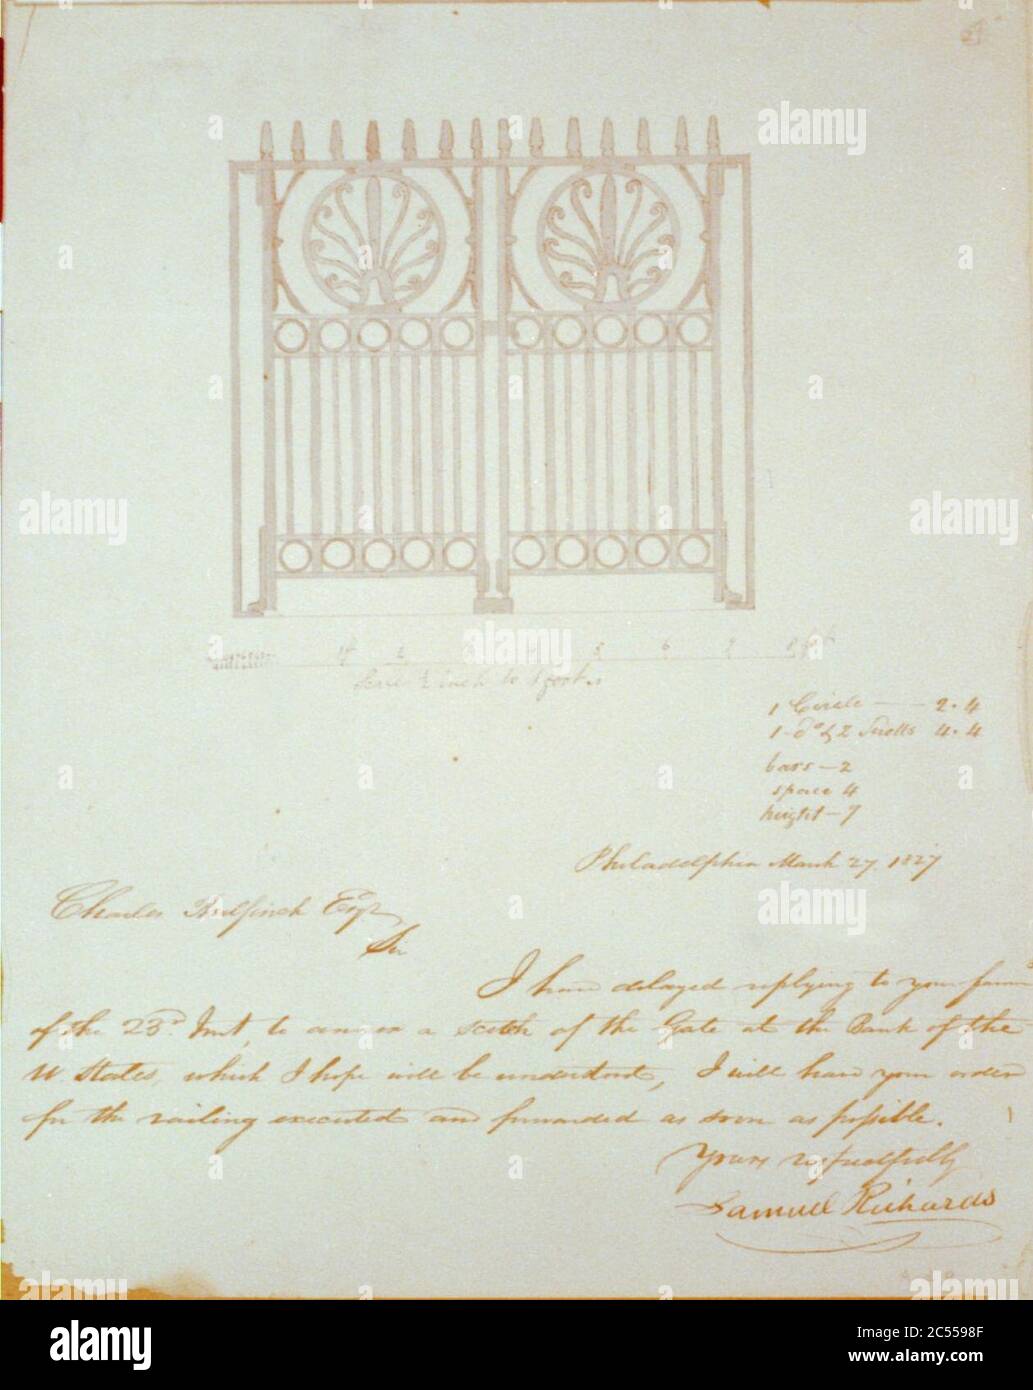 27
1ft 2 3 4 5 6 7 8 ft
Scale ½ inch to 1 foot
1 Circle — 2.4
1 do & 2 Scrolls 4.4
bars — 2
space 4
height — 7
Philadelphia March 27. 1827
Charles Bulfinch Esqr
Sir
I have delayed replying to your favour
of the 23d Inst, to a sketch of the Gate at the Bank of the
U. States, which I hope will be understood, I will have your order
for the railing executed and forwarded as soon as possible.
Yours respectfully
Samuel Richards
alamy
alamy
alamy
alamy
a
a
a
a
a
a
alamy
Image ID: 2C5598F
www.alamy.com